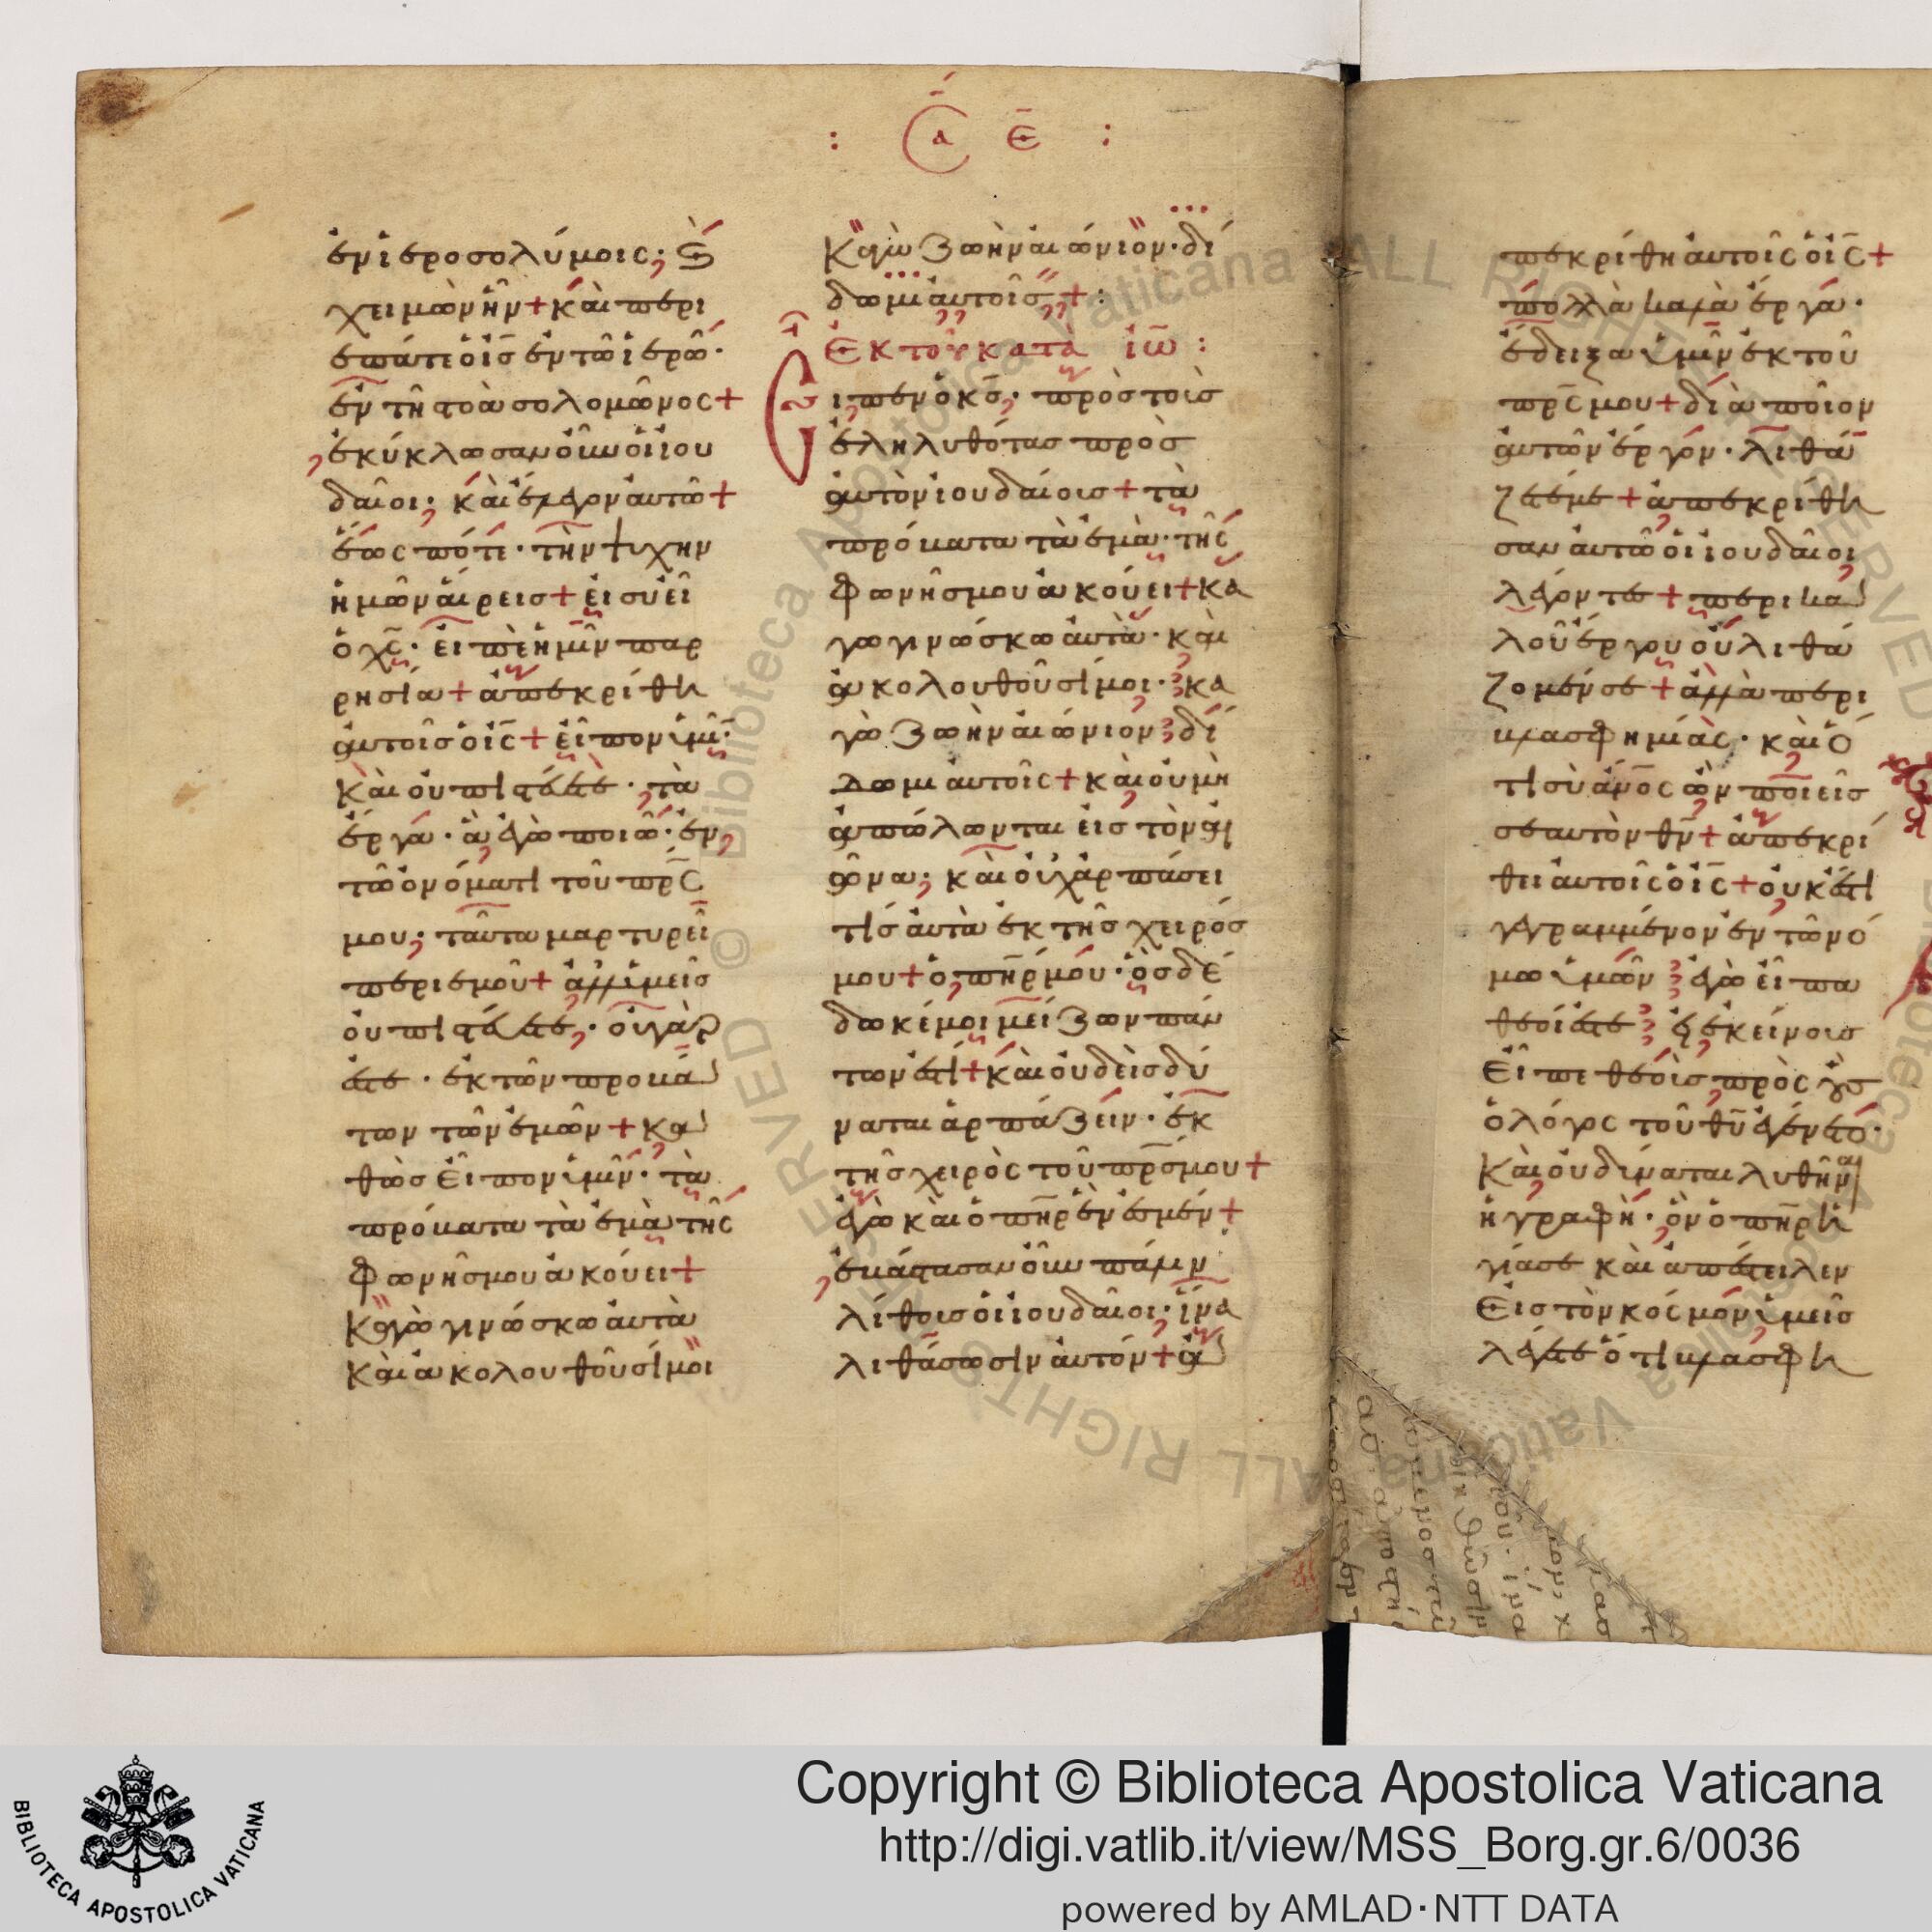 : ϹΑ Ε :
ἐν ἱεροσολύμοις; καὶ
χειμὼν ἦν + καὶ περι
επάτει ὁ ις ἐν τῶ ἱερῶ·
ἐν τῆ στοᾶ σολομῶνος +
ἐκύκλωσαν οὖν οἱ ιου
δαῖοι; καὶ ἔλεγον αυτῶ +
ἕως πότε· τὴν ψυχην
ἡμῶν αίρεις + ἐι σὺ εῖ
ὁ χς· ἐιπὲ ἡμῖν παρ
ρησία + ἀπεκρίθη
ἀυτοῖς ὁ ις + εἶπον ὑμῖ·
καὶ ου πιστέυετε· τὰ
ἔργα· ἃ ἐγὼ ποιῶ· ἐν
τῶ ονόματι τοῦ πρς
μου; ταῦτα μαρτυρεῖ
περι εμοῦ + ἀλλ ὑμεῖς
ὀυ πιστέυετε· οὐ γὰρ
ἐστε· ἐκ τῶν προβά
των τῶν ἐμῶν + κα
θὼς εἶπον ὑμῖν· τὰ
πρόβατα τὰ ἐμὰ τῆς
φωνῆς μου ἀκούει +
Κἀγὼ γινώσκω ἀυτὰ
Καὶ ἀκολουθοῦσί μοι
Κἀγὼ ζωὴν αιώνιον· δί
δωμι ἀυτοῖς + :
Εκ τοῦ κατὰ ιω :
Ειπεν ὁ κς· πρὸς τοὺς
ἐληλυθότας πρὸς
ἀυτὸν ιουδαίοις + τὰ
πρόβατα τὰ ἐμὰ· τῆς
φωνῆς μου ἀκούει + κα
γὼ γινώσκω ἀυτὰ· καὶ
ἀκολουθοῦσί μοι· κα
γὼ ζωὴν αιώνιον δί
δωμι ἀυτοῖς + καὶ ου μὴ
ἀπώλωνται ἐις τὸν αἰ
ῶνα; καὶ ὀυχ ἁρπάσει
τίς ἀυτὰ ἐκ τῆς χειρός
μου + ὁ πηρ μου· ὃς δέ
δωκέ μοι μείζων πάν
των ἐστί + καὶ ὀυδεὶς δύ
ναται ἁρπάζειν· ἐκ
τῆς χειρὸς τοῦ πρς μου +
ἐγὼ καὶ ὁ πηρ ἕν ἐσμέν +
ἐβάστασαν οὖν πάλιν
λίθοις οἱ ιουδαῖοι· ἵνα
λιθάσωσιν ἀυτόν + ἀ
πεκρίθη ἀυτοῖς ὁ ις +
πολλὰ καλὰ ἔργα·
ἔδειξα ὑμῖν ἐκ τοῦ
πρς μου + διὰ ποῖον
ἀυτῶν ἔργον· λιθά
ζετέ με + ἀπεκρίθη
σαν ἀυτῶ οἱ ιουδαῖοι
λέγοντες + περι κα
λοῦ ἔργου ὀυ λιθά
ζομέν σε + ἀλλὰ περι
βλασφημίας· καὶ ὅ
τι σὺ ανος ὢν ποιεῖς
σεαυτὸν θν + ἀπεκρί
θει ἀυτοῖς ὁ ις + ὀυκ ἔστι
γεγραμμένον ἐν τῶ νό
μω ὑμῶν ἐγὼ εἶπα
θεοί ἐστε εἰ ἐκείνοις
Εἶπε θεοὺς πρὸς οὓς
ὁ λόγος τοῦ θυ ἐγένετο·
Καὶ ὀυ δύναται λυθῆναι
ἡ γραφή· ὃν ὁ πηρ ἡ
γίασε καὶ ἀπέστειλεν
Εις τὸν κόσμον ὑμεῖς
λέγετε ὅτι βλασφη
BIBLIOTECA APOSTOLICA VATICANA
Copyright © Biblioteca Apostolica Vaticana
http://digi.vatlib.it/view/MSS_Borg.gr.6/0036
powered by AMLAD·NTT DATA